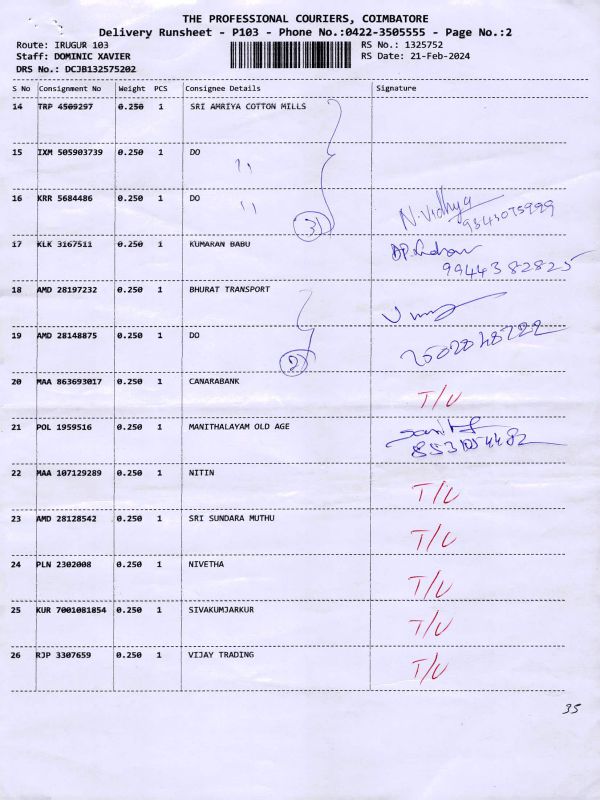 THE PROFESSIONAL COURIERS, COIMBATORE
Delivery Runsheet - P103 - Phone No.:0422-3505555 - Page No.:2
Route: IRUGUR 103 RS No.: 1325752
Staff: DOMINIC XAVIER RS Date: 21-Feb-2024
DRS No.: DCJB132575202
S No Consignment No Weight PCS Consignee Details Signature
14 TRP 4509297 0.250 1 SRI AMRIYA COTTON MILLS
15 IXM 505903739 0.250 1 DO
16 KRR 5684486 0.250 1 DO
3 N.Vidhya
9343075999
17 KLK 3167511 0.250 1 KUMARAN BABU
9944382825
18 AMD 28197232 0.250 1 BHURAT TRANSPORT
19 AMD 28148875 0.250 1 DO
2
20 MAA 863693017 0.250 1 CANARABANK
T/U
21 POL 1959516 0.250 1 MANITHALAYAM OLD AGE
8531054482
22 MAA 107129289 0.250 1 NITIN
T/U
23 AMD 28128542 0.250 1 SRI SUNDARA MUTHU
T/U
24 PLN 2302008 0.250 1 NIVETHA
T/U
25 KUR 7001081854 0.250 1 SIVAKUMJARKUR
T/U
26 RJP 3307659 0.250 1 VIJAY TRADING
T/U
35